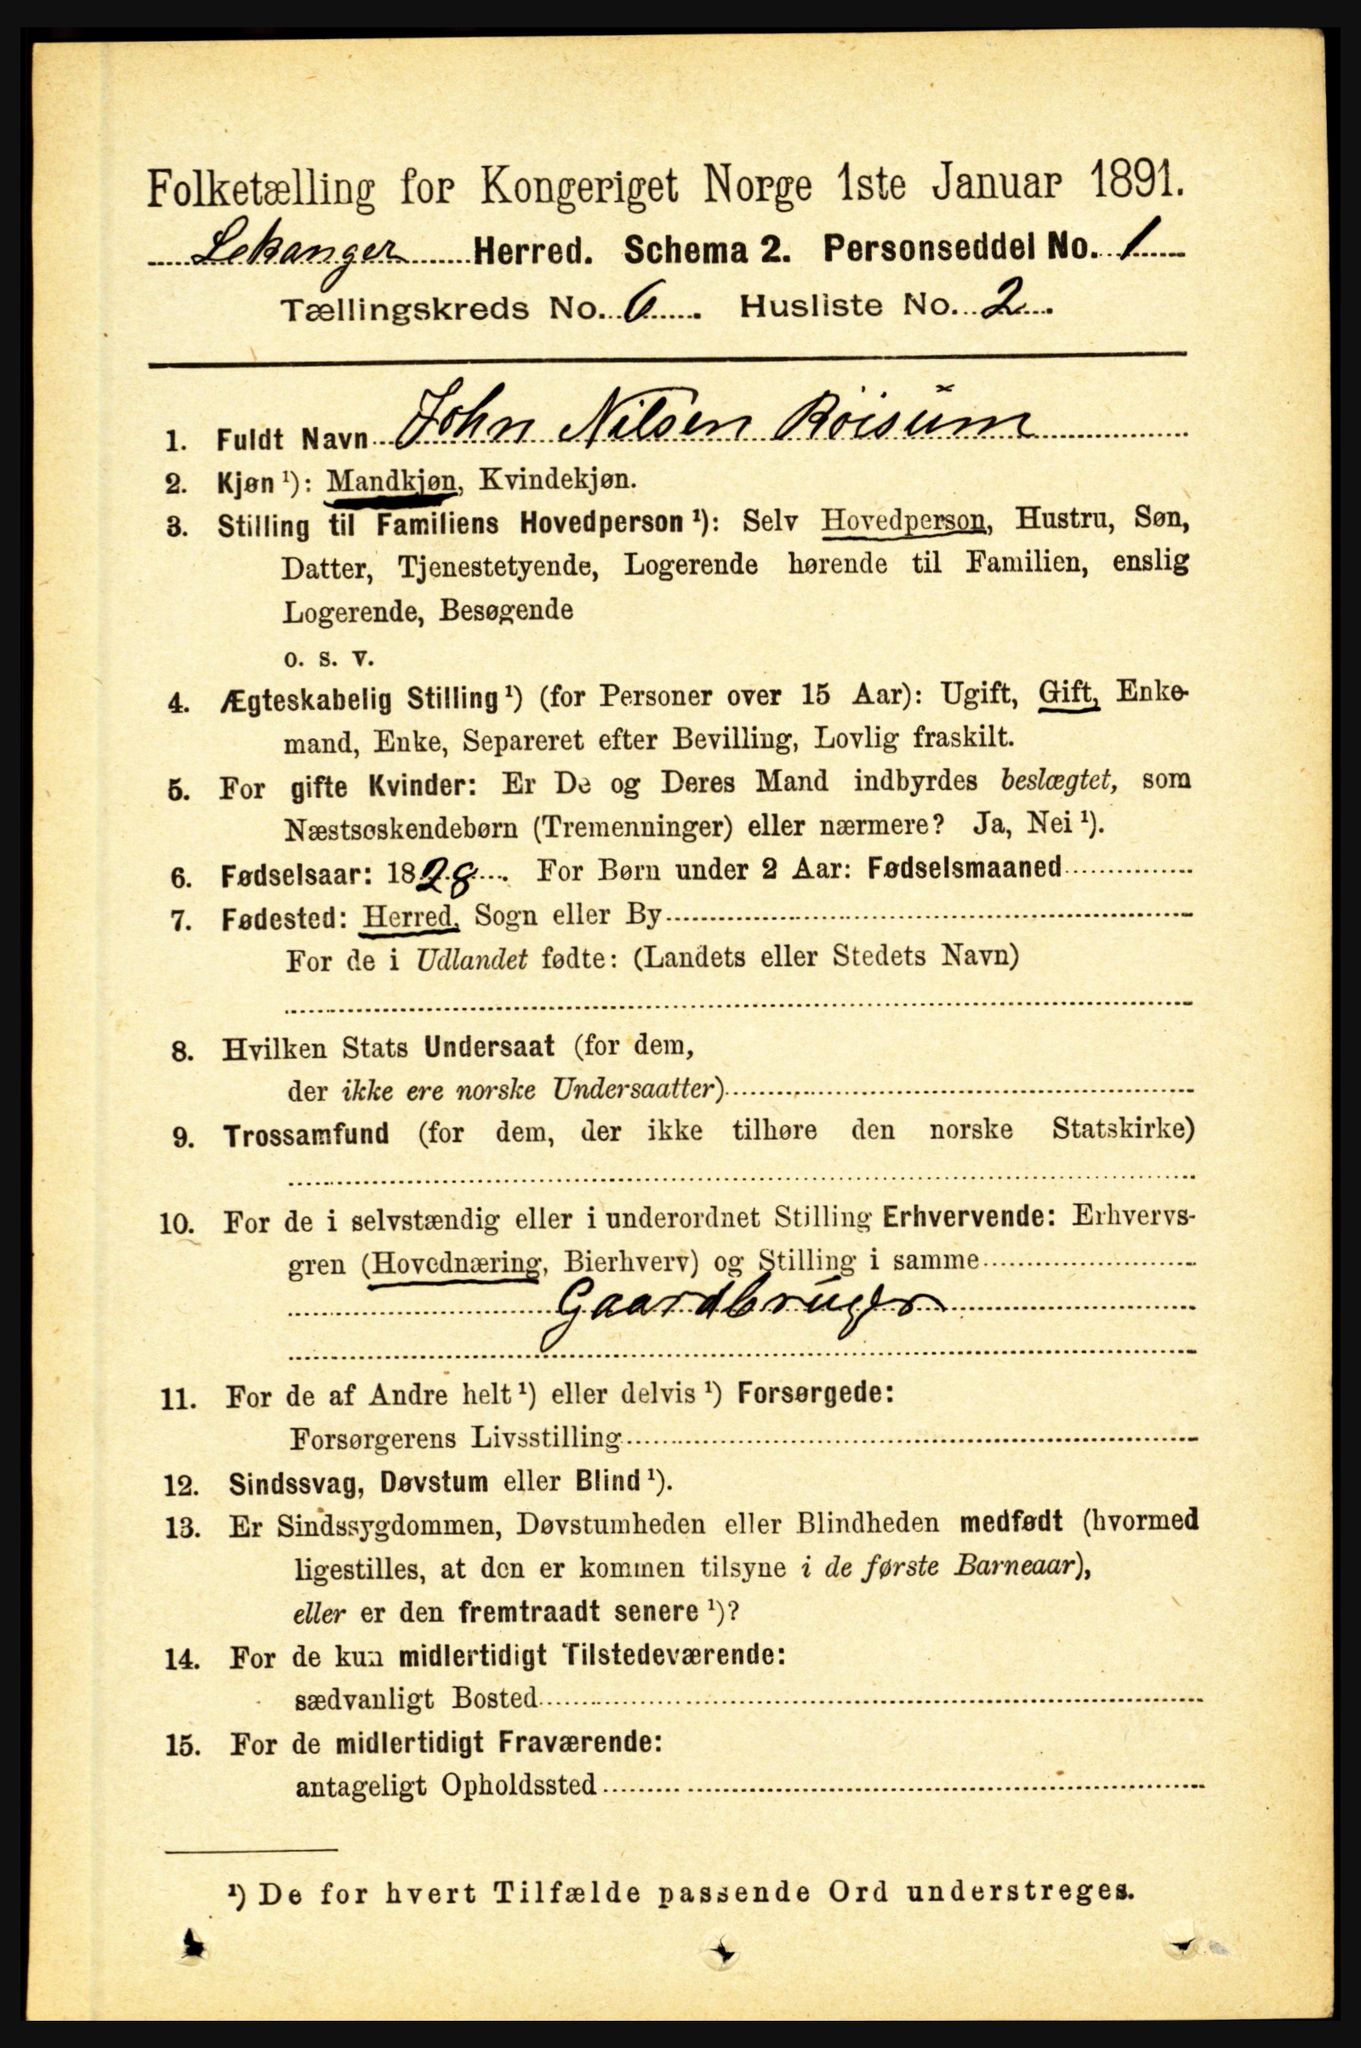 Folketælling for Kongeriget Norge 1ste Januar 1891.
Lekanger Herred. Schema 2. Personseddel No. 1
Tællingskreds No. 6. Husliste No. 2.
1. Fuldt Navn John Nilsen Röisum
2. Kjøn ¹): Mandkjøn, Kvindekjøn.
3. Stilling til Familiens Hovedperson ¹): Selv Hovedperson, Hustru, Søn,
Datter, Tjenestetyende, Logerende hørende til Familien, enslig
Logerende, Besøgende
o. s. v.
4. Ægteskabelig Stilling ¹) (for Personer over 15 Aar): Ugift, Gift, Enke-
mand, Enke, Separeret efter Bevilling, Lovlig fraskilt.
5. For gifte Kvinder: Er De og Deres Mand indbyrdes beslægtet, som
Næstsøskendebørn (Tremenninger) eller nærmere? Ja, Nei ¹).
6. Fødselsaar: 1828. For Børn under 2 Aar: Fødselsmaaned
7. Fødested: Herred, Sogn eller By
For de i Udlandet fødte: (Landets eller Stedets Navn)
8. Hvilken Stats Undersaat (for dem,
der ikke ere norske Undersaatter)
9. Trossamfund (for dem, der ikke tilhøre den norske Statskirke)
10. For de i selvstændig eller i underordnet Stilling Erhvervende: Erhvervs-
gren (Hovednæring, Bierhverv) og Stilling i samme
Gaardbruger
11. For de af Andre helt ¹) eller delvis ¹) Forsørgede:
Forsørgerens Livsstilling
12. Sindssvag, Døvstum eller Blind ¹).
13. Er Sindssygdommen, Døvstumheden eller Blindheden medfødt (hvormed
ligestilles, at den er kommen tilsyne i de første Barneaar),
eller er den fremtraadt senere ¹)?
14. For de kun midlertidigt Tilstedeværende:
sædvanligt Bosted
15. For de midlertidigt Fraværende:
antageligt Opholdssted
¹) De for hvert Tilfælde passende Ord understreges.